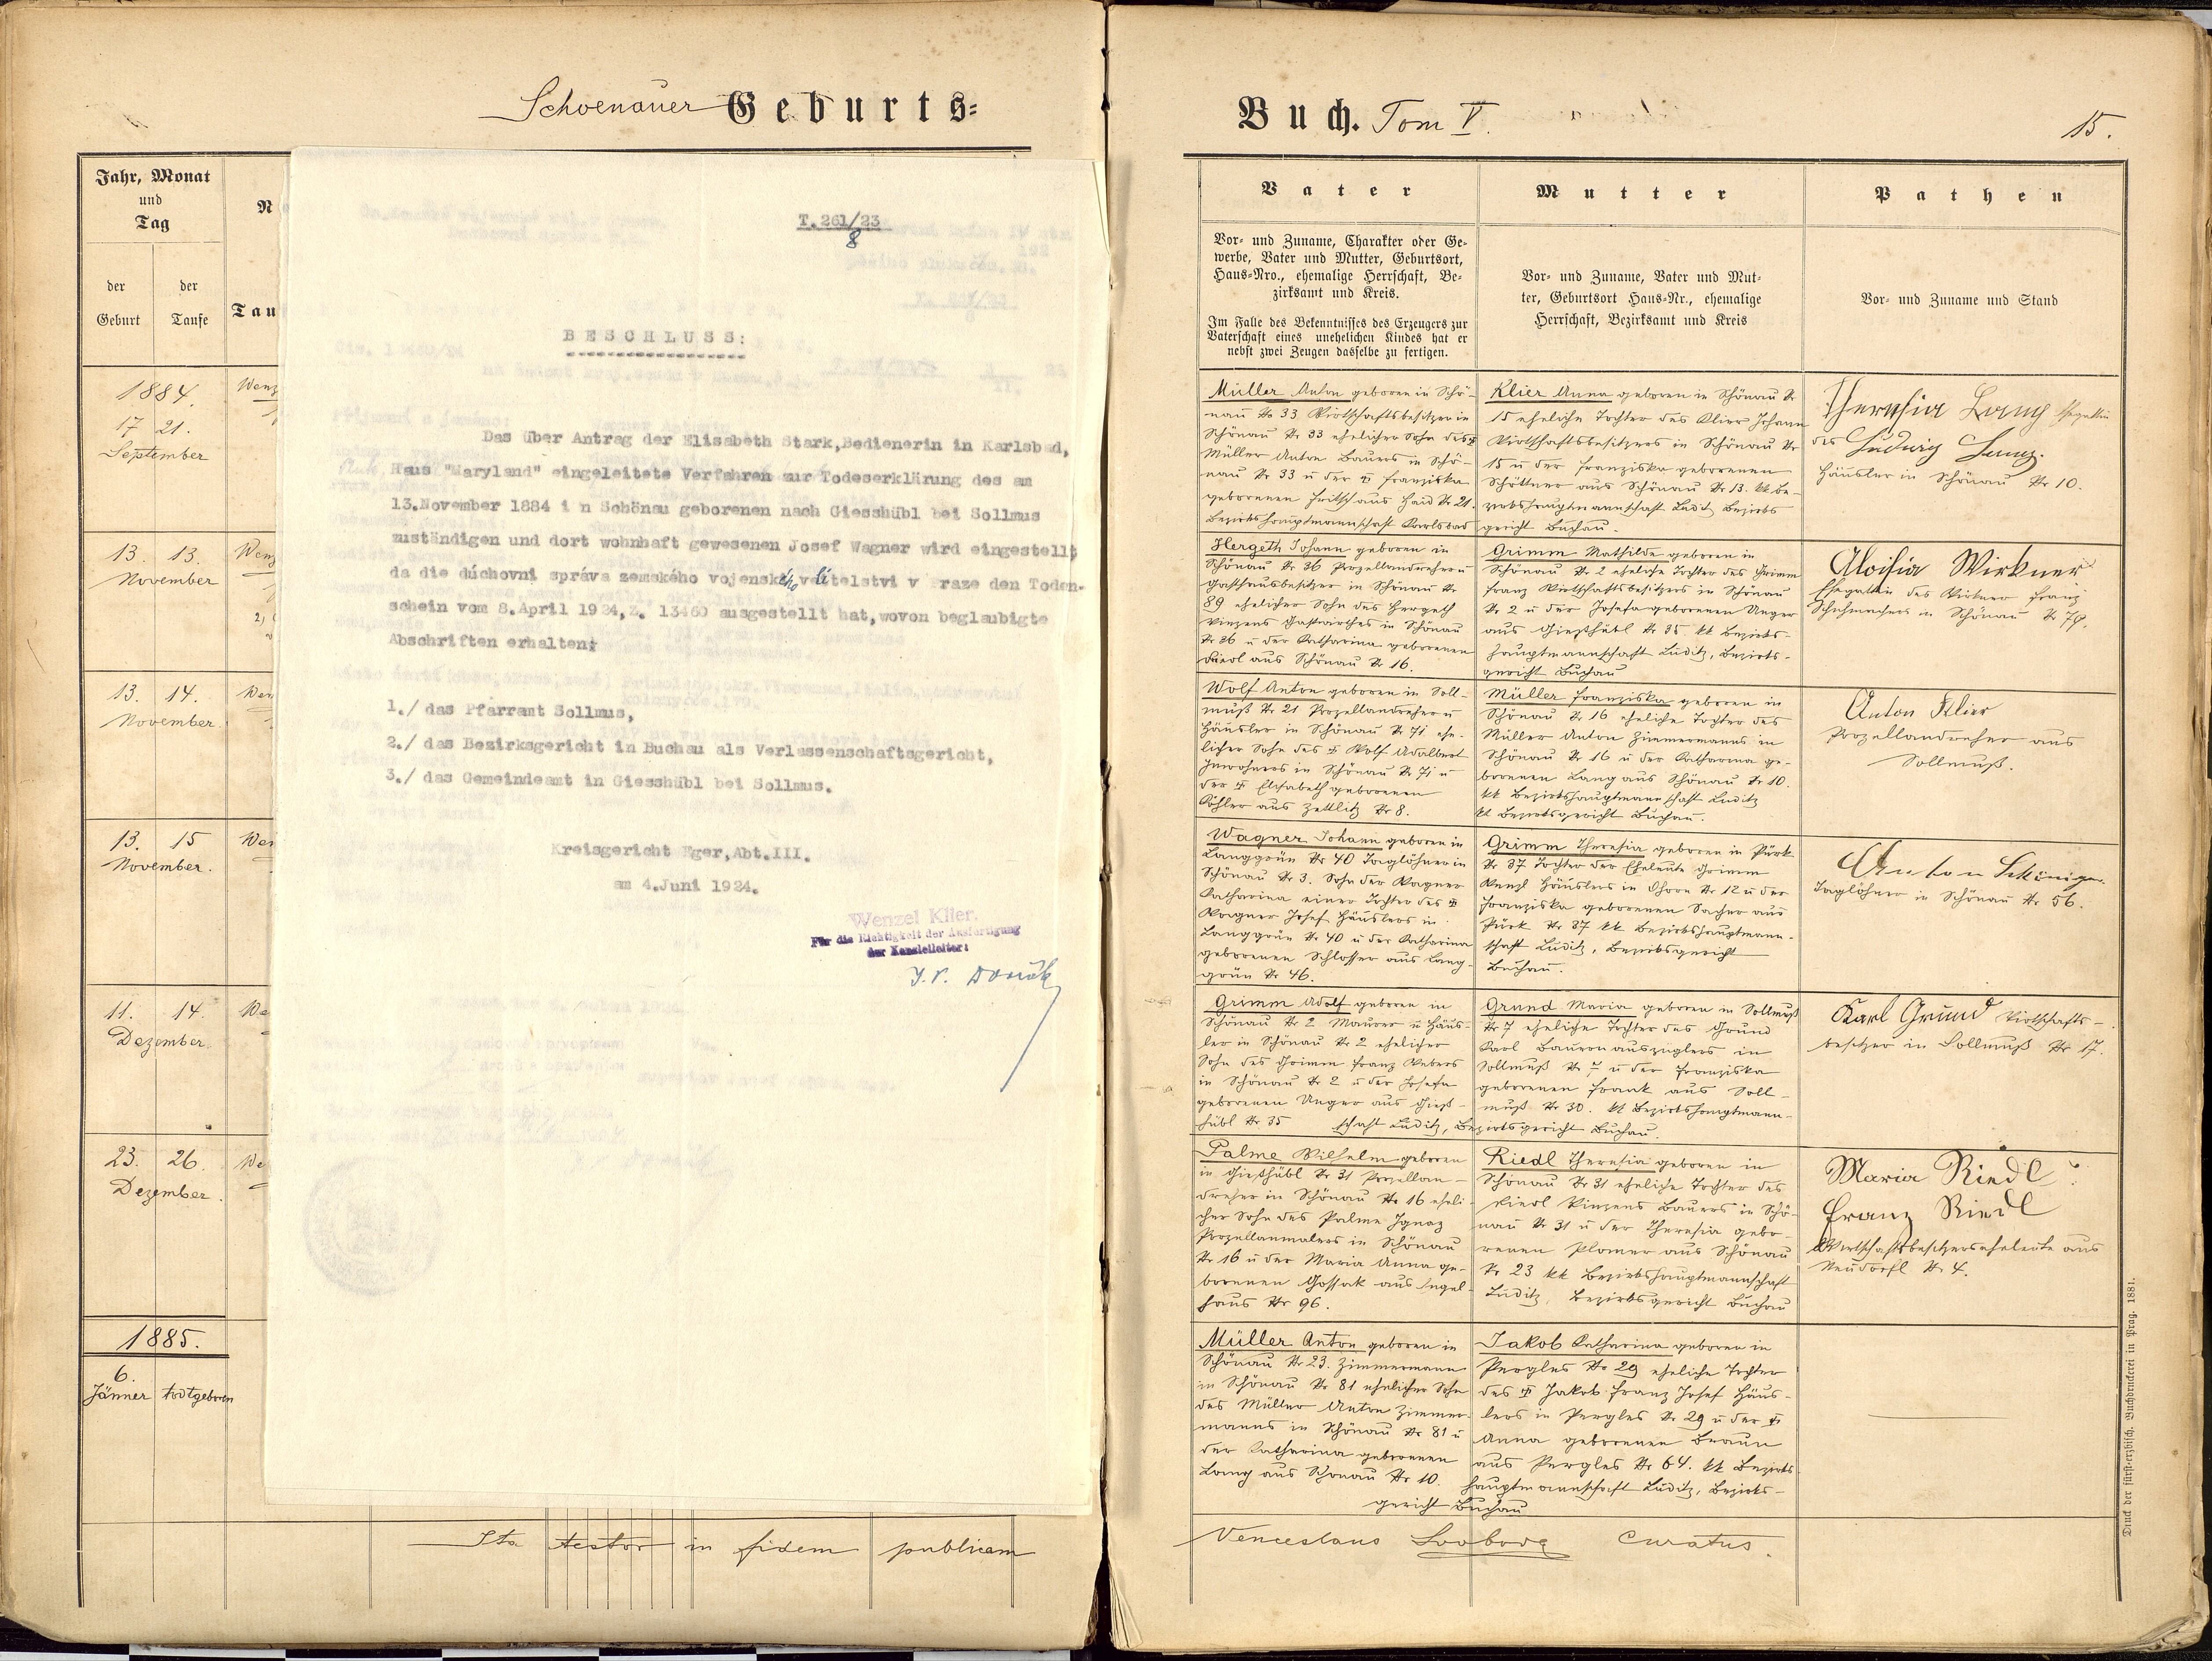 Schoenauer Geburts=
Jahr, Monat
und
Tag
der
Geburt
der
Taufe
Tau
1884.
17 21.
September
Wenz
13. 13.
November
Wenz
13. 14.
November.
Wen
13. 15
November.
Wen
11. 14.
Dezember.
We
23. 26.
Dezember.
We
1885.
6.
Jänner todtgeboren
T. 261/23
8
BESCHLUSS:
Das über Antrag der Elisabeth Stark,Bedienerin in Karlsbad,
Haus "Maryland" eingeleitete Verfahren zur Todeserklärung des am
13.November 1884 i n Schönau geborenen nach Giesshübl bei Sollmus
zuständigen und dort wohnhaft gewesenen Josef Wagner wird eingestellt
da die dúchovni správa zemského vojenského velitelstvi v raze den Toden-
schein vom 8.April 1924,Z. 13460 ausgestellt hat,wovon beglaubigte
Abschriften erhalten:
1./ das Pfarramt Sollmus,
2./ das Bezirksgericht in Buchau als Verlassenschaftsgericht,
3./ das Gemeindeamt in Giesshübl bei Sollmus.
Kreisgericht Eger,Abt.III.
am 4.Juni 1924.
Wenzel Klier.
Für die Richtigkeit der Ausfertigung
der Kanzleileiter:
Ita testor in fidem publicam
Buch. Tom V.
15.
Vater
Vor- und Zuname, Charakter oder Ge-
werbe, Vater und Mutter, Geburtsort,
Haus-Nro., ehemalige Herrschaft, Be-
zirksamt und Kreis.
Im Falle des Bekenntnisses des Erzeugers zur
Vaterschaft eines unehelichen Kindes hat er
nebst zwei Zeugen dasselbe zu fertigen.
Mutter
Vor- und Zuname, Vater und Mut-
ter, Geburtsort Haus-Nr., ehemalige
Herrschaft, Bezirksamt und Kreis
Pathen
Vor- und Zuname und Stand
Müller Anton geboren in Schö-
nau Nr 33 Wirtschaftsbesitzer in
Schönau Nr 33 ehelicher Sohn des
Müller Anton Bauers in Schö-
nau Nr 33 u der † Franziska
geborenen Fritsch aus Haid Nr 21.
Bezirkshauptmannschaft Karlsbad
Klier Anna geboren in Schönau Nr
15 eheliche Tochter des Klier Johann
Wirtschaftsbesitzers in Schönau Nr
15 u der Franziska geborenen
Schöttner aus Schönau Nr 13. kk Be-
zirkshauptmannschaft Luditz Bezirks
gericht Buchau.
Theresia Lang Ehegattin
des Ludwig Lang.
Häusler in Schönau Nr 10.
Hergeth Johann geboren in
Schönau Nr 36 Porzellandreher u
Gasthausbesitzer in Schönau Nr
89 ehelicher Sohn des Hergeth
Vinzens Gastwirthes in Schönau
Nr 36 u der Katharina geborenen
Riedl aus Schönau Nr 16.
Grimm Mathilde geboren in
Schönau Nr 2 eheliche Tochter des Grimm
Franz Wirtschaftsbesitzers in Schönau
Nr 2 u der Josefa geborenen Unger
aus Gießhübl Nr 35 kk Bezirks-
hauptmannschaft Luditz, Bezirks-
gericht Buchau
Aloisia Wirkner
Ehegattin des Wirkner Franz
Schuhmachers in Schönau Nr 79.
Wolf Anton geboren in Soll-
muß Nr 21 Porzellandreher u
Häusler in Schönau Nr 71 ehe-
licher Sohn des † Wolf Adalbert
Inwohners in Schönau Nr 71 u
der † Elisabeth geborenen
Köhler aus Zettlitz Nr 8.
Müller Franziska geboren in
Schönau Nr 16 eheliche Tochter des
Müller Anton Zimmermanns in
Schönau Nr 16 u der Katharina ge-
borenen Lang aus Schönau Nr 10.
kk Bezirkshauptmannschaft Luditz
kk Bezirksgericht Buchau.
Anton Klier
Porzellandreher aus
Sollmuß.
Wagner Johann geboren in
Langgrün Nr 40 Taglöhner in
Schönau Nr 3. Sohn der Wagner
Katharina einer Tochter des †
Wagner Josef Häuslers in
Langgrün Nr 40 u der Katharina
geborenen Schlosser aus Lang-
grün Nr 46.
Grimm Theresia geboren in Pürk
Nr 37 Tochter der Eheleute Grimm
Wenzl Häuslers in Ohorn Nr 12 u der
Franziska geborenen Sacher aus
Pürk Nr 37 kk Bezirkshauptmann-
schaft Luditz, Bezirksgericht
Buchau.
Anton Schöniger
Taglöhner in Schönau Nr 56.
Grimm Adolf geboren in
Schönau Nr 2 Maurer u Häus-
ler in Schönau Nr 2 ehelicher
Sohn des Grimm Franz Webers
in Schönau Nr 2 u der Josefa
geborenen Unger aus Gieß-
hübl Nr 35
Grund Maria geboren in Sollmuß
Nr 7 eheliche Tochter des Grund
Karl Bauernauszüglers in
Sollmuß Nr 7 u der Franziska
geborenen Frank aus Soll-
muß Nr 30. kk Bezirkshauptmann-
schaft Luditz, Bezirksgericht Buchau.
Karl Grund Wirtschafts-
besitzer in Sollmuß Nr 17.
Palme Wilhelm geboren
in Gießhübl Nr 31 Porzellan-
dreher in Schönau Nr 16 eheli-
cher Sohn des Palme Ignaz
Porzellanmalers in Schönau
Nr 16 u der Maria Anna ge-
borenen Gossak aus Engel-
haus Nr 96.
Riedl Theresia geboren in
Schönau Nr 31 eheliche Tochter des
Riedl Vinzens Bauers in Schö-
nau Nr 31 u der Theresia gebo-
renen Plomer aus Schönau
Nr 23 kk Bezirkshauptmannschaft
Luditz, Bezirksgericht Buchau
Maria Riedl
Franz Riedl
Wirtschaftsbesitzerseheleute aus
Neudörfl Nr 4.
Müller Anton geboren in
Schönau Nr 23. Zimmermann
in Schönau Nr 81 ehelicher Sohn
des Müller Anton Zimmer-
manns in Schönau Nr 81 u
der Katharina geborenen
Lang aus Schönau Nr 10.
Jakob Katharina geboren in
Pergles Nr 29 eheliche Tochter
des † Jakob Franz Josef Häus-
lers in Pergles Nr 29 u der †
Anna geborenen Braun
aus Pergles Nr 64. kk Bezirks
hauptmannschaft Luditz, Bezirks-
gericht Buchau
Venceslaus Svoboda Curatus.
Druck der fürst-erzbisch. Buchdruckerei in Prag. 1881.